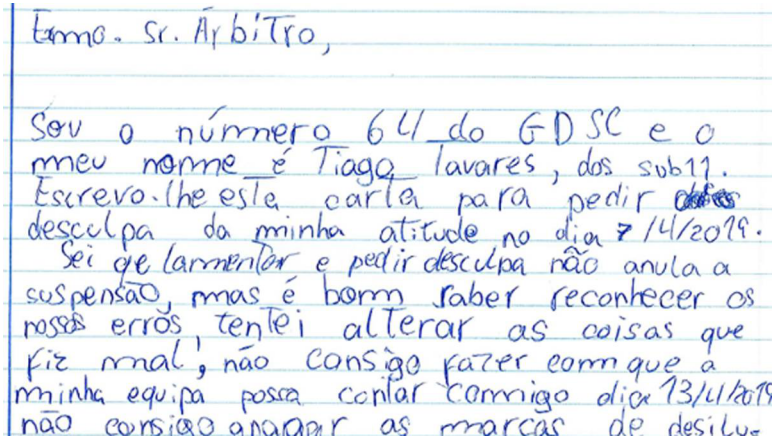 Exmo. Sr. Árbitro,
Sou o número 64 do GDSC e o
meu nome é Tiago Tavares, dos sub11.
Escrevo-lhe esta carta para pedir
desculpa da minha atitude no dia 7/4/2019.
Sei qe lamentar e pedir desculpa não anula a
suspensão, mas é bom saber reconhecer os
nossos erros, tentei alterar as coisas que
fiz mal, não consigo fazer com que a
minha equipa possa contar commigo dia 13/4/2019
não consigo apagar as marcas de desilu-